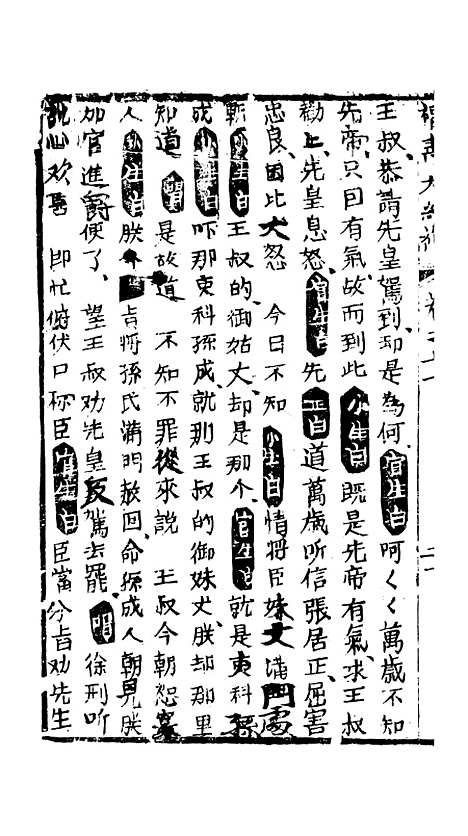 王叔、恭請先皇駕到、却是為何、官生白呵〻〻萬歲不知
先帝、只因有氣、故而到此、小生白既是先帝有氣、求王叔
勸上、先皇息怒、官生白先正白道萬歲听信張居正、屈害
忠良、因比大怒 今日不知小生白情將臣妹丈滿門處
斬、小生白王叔的、御姑丈、却是那个、官生白就是吏科孫
成、小生白吓那吏科孫成、就那王叔的御妹丈、朕却那里
知道 唱是故道 不知不罪從來說 王叔今朝恕寡
人 小生白朕今 旨將孫氏滿門赦回、命孫成人朝見朕
加官進爵便了、望王叔劝先皇返駕去罷、唱徐刑听
説心欢喜 即忙俯伏口称臣官生白臣當分旨劝先生